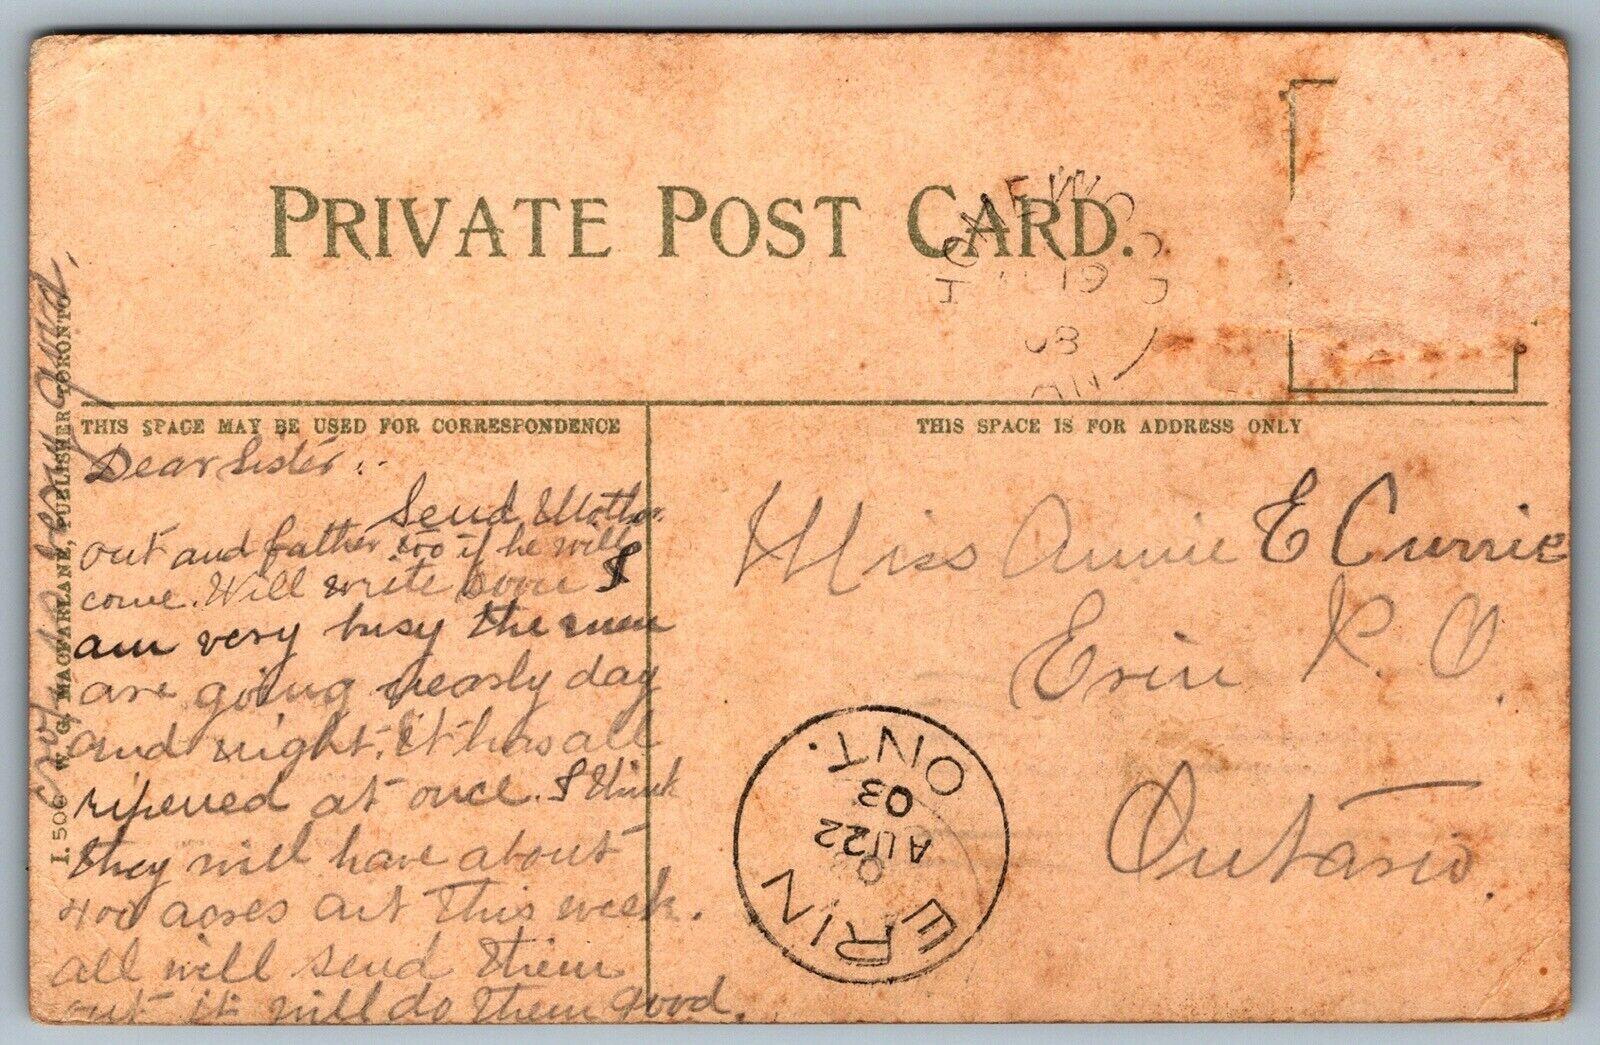 PRIVATE POST CARD.
19
08
THIS SPACE MAY BE USED FOR CORRESPONDENCE
THIS SPACE IS FOR ADDRESS ONLY
Dear Sister.
Send Mother
out and father too if he will
come. Will write soon I
am very busy the men
are going nearly day
and night. It has all
ripened at once. I think
they will have about
400 acres cut this week.
all will send them
out it will do them good.
Miss Annie E Currie
Erin P. O.
Ontario.
ERIN
AU 22
03
ONT.
I. 506 W. G. MACFARLANE, PUBLISHER TORONTO